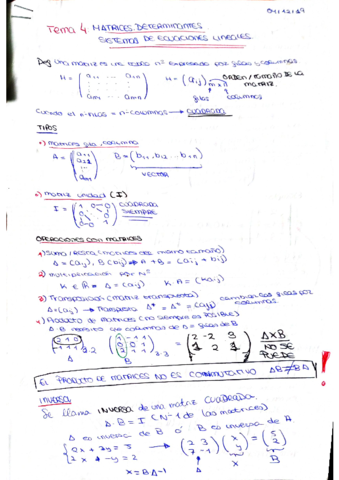 04/12/17
Tema 4 MATRICES, DETERMINANTES
SISTEMA DE ECUACIONES LINEALES
Def Una matriz es una tabla nº expresada por filas y columnas
H = (a11 ... a1n
am1 ... amn)
H = (aij) m x n
ORDEN / TAMAÑO DE LA MATRIZ
filas columnas
Cuando el n-filas = n-columnas → CUADRADA
TIPOS
*) Matrices fila, columna
A = (a11
a21
...
am1)
B = (b11, b12 ... b1n)
VECTOR
*) Matriz unidad (I)
I = CUADRADA SIEMPRE
OPERACIONES CON MATRICES
1) Suma/resta (matrices del mismo tamaño)
A = (aij), B(bij) → A + B = (aij + bij)
2) Multiplicación por Nº
K ∈ R = A = (aij) K.A = (Kaij)
3) Transposición (matriz transpuesta) cambian las filas por columnas
A = (aij) → Transpuesta At = At = (aji)
4) Producto de Matrices (no siempre es posible)
A·B necesito que columnas de A = filas de B
(2 1 0
-1 1 1) 2·3 (1 -1 1
0 0 1) 3·3 = (2 -2 3
1 2 1)
AXB
NO SE
PUEDE
EL PRODUCTO DE MATRICES NO ES CONMUTATIVO AB ≠ BA !
INVERSA
Se llama INVERSA de una matriz cuadrada.
A·B = I (Nº 1 de las matrices)
A es inversa de B ó B es inversa de A.
{2x + 3y = 5
7x + 1y = 2
(2 3
7 1) (x
y) = (5
2)
A X B
X = BA-1